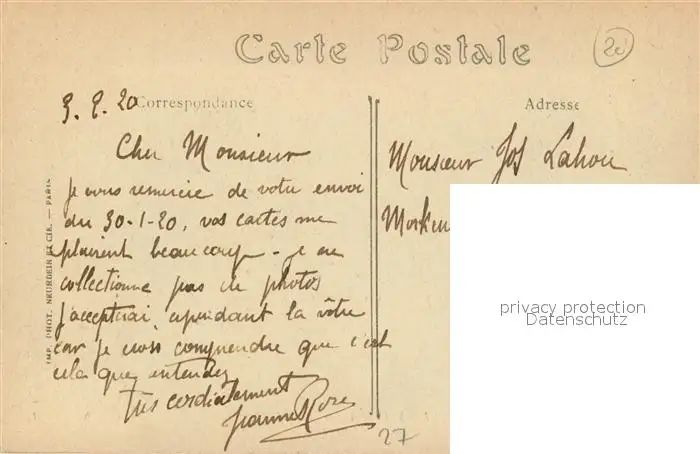 Carte Postale
20
3. 2. 20
Correspondance
Adresse
Cher Monsieur
je vous remercie de votre envoi
du 30-1-20, vos cartes me
plairent beaucoup - je ne
collectionne pas de photos
j'accepterai cependant la vôtre
car je crois comprendre que c'est
cela que entendez
très cordialement
Monsieur Jos Lahou
IMP. PHOT. NEURDEIN ET CIE. — PARIS
27
privacy protection
Datenschutz